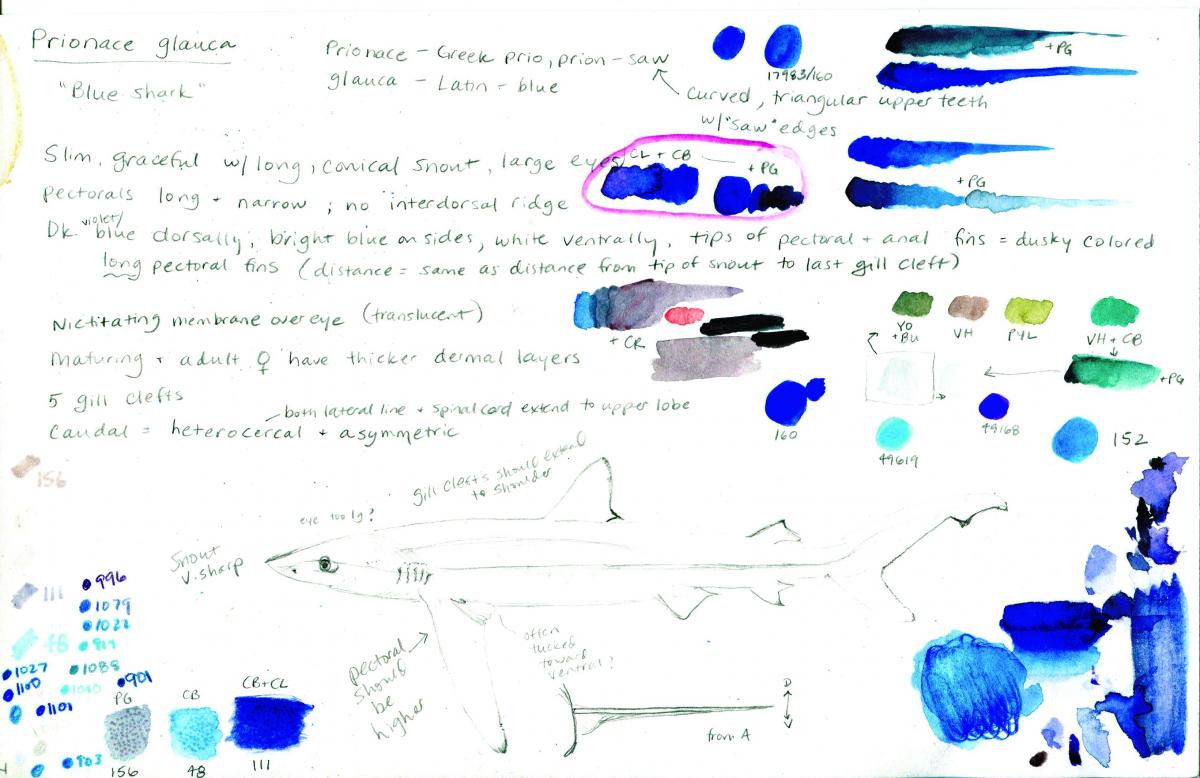 Prionace glauca
"Blue shark"
Prionace - Greek prio, prion - saw
glauca - Latin - blue
curved, triangular upper teeth
w/ "saw" edges
17983/160
+ PG
Slim, graceful w/ long, conical snout, large eyes
Pectorals long + narrow ; no interdorsal ridge
Dk. violet/ blue dorsally; bright blue on sides, white ventrally, tips of pectoral + anal fins = dusky colored
long pectoral fins (distance = same as distance from tip of snout to last gill cleft)
CL + CB
+ PG
+ PG
Nictitating membrane over eye (translucent)
maturing + adult ♀ have thicker dermal layers
5 gill clefts
both lateral line + spinal cord extend to upper lobe
Caudal = heterocercal + asymmetric
+ CR
160
YO
+ BU
VH
PYL
VH + CB
+ PG
49168
49619
152
156
gill clefts should extend
to shoulder
eye too lg?
Snout
V. sharp
pectoral
should
be
higher
often
tucked
toward
ventral?
D
V
from A
996
111
1079
1022
48
1027
1088
1100
901
1101
903
PG
CB
CB+CL
156
48
111